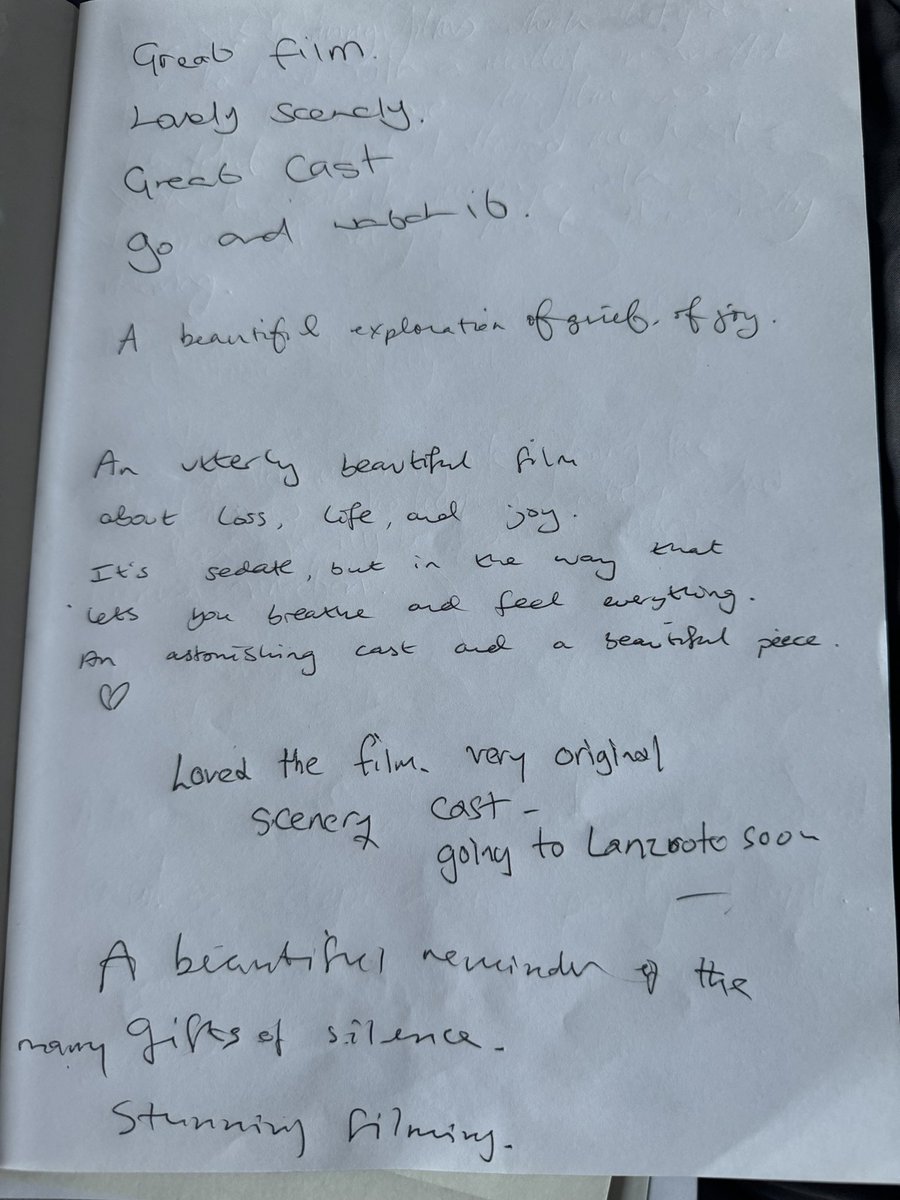 Great film.
Lovely scenery.
Great Cast
go and watch it.
A beautiful exploration of grief. of joy.
An utterly beautiful film
about loss, life, and joy.
It's sedate, but in the way that
lets you breathe and feel everything.
An astonishing cast and a beautiful piece.
♡
Loved the film. very original
scenery cast -
going to Lanzrote soon
A beautiful reminder of the
many gifts of silence.
Stunning filming.